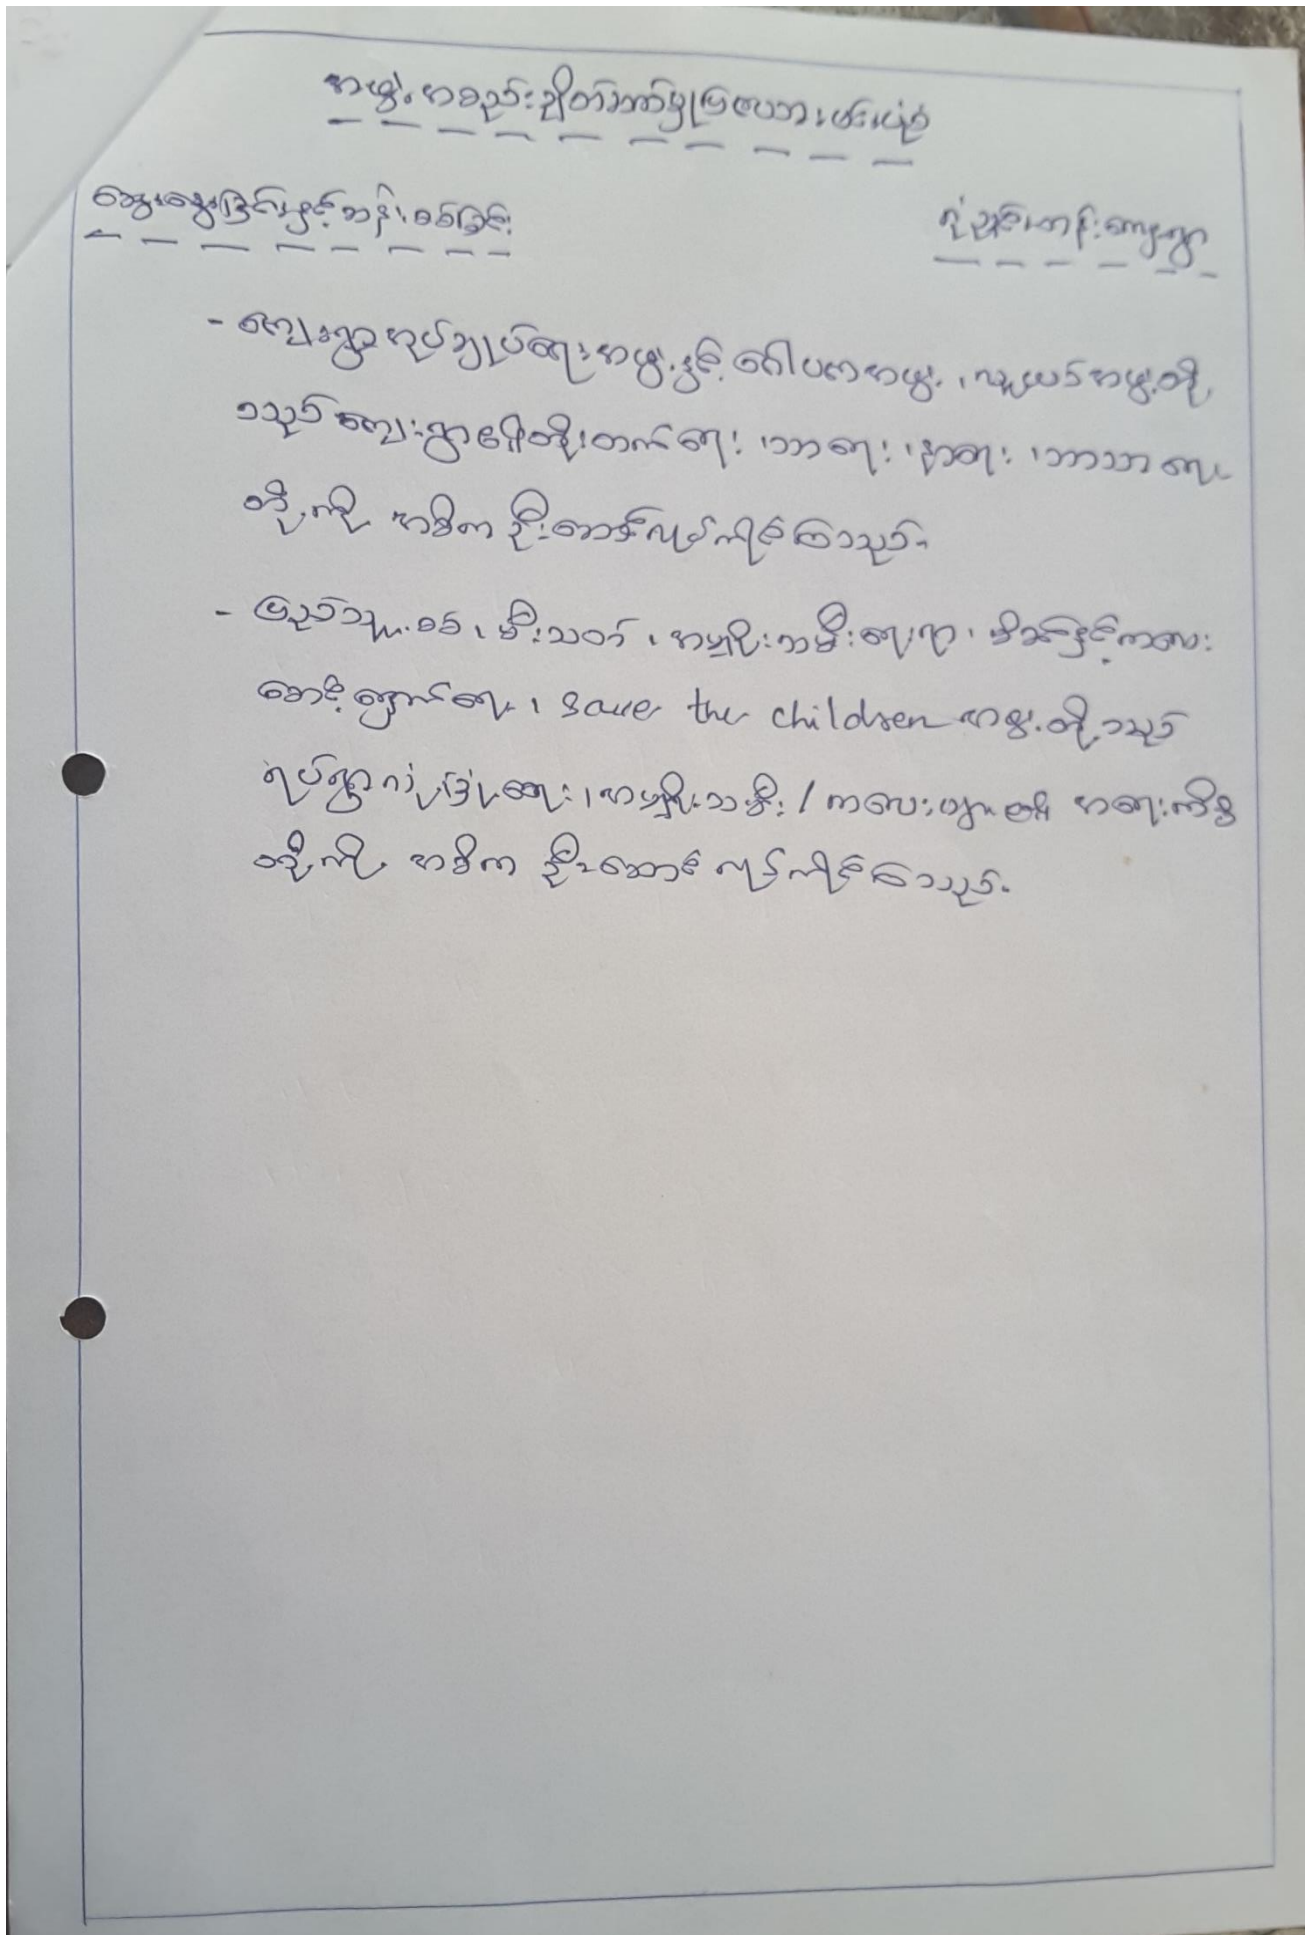 အဖွဲ့အစည်းချိတ်ဆက်မှုပြလေဘားမင်းပုံစံ
ဆွေးနွေးခြင်းနှင့်ဆန်းစစ်ခြင်း
ကုံညှင်းတန်းကျေးရွာ
- ကျေးရွာအုပ်ချုပ်ရေးအဖွဲ့နှင့် ဂေါပကအဖွဲ့၊ လူငယ်အဖွဲ့တို့
သည် ကျေးရွာဖွံ့ဖြိုးတိုးတက်ရေး၊ သာရေး၊ နာရေး၊ ဘာသာရေး
တို့ကို အဓိက ဦးဆောင်လုပ်ကိုင်ကြသည်။
- ပြည်သူ့စစ်၊ မီးသတ်၊ အမျိုးသမီးရေးရာ၊ မိခင်နှင့်ကလေး
စောင့်ရှောက်ရေး၊ save the children အဖွဲ့တို့သည်
ရပ်ရွာလုံခြုံရေး၊ အမျိုးသမီး / ကလေးများ၏ အရေးကိစ္စ
တို့ကို အဓိက ဦးဆောင် လုပ်ကိုင်ကြသည်။